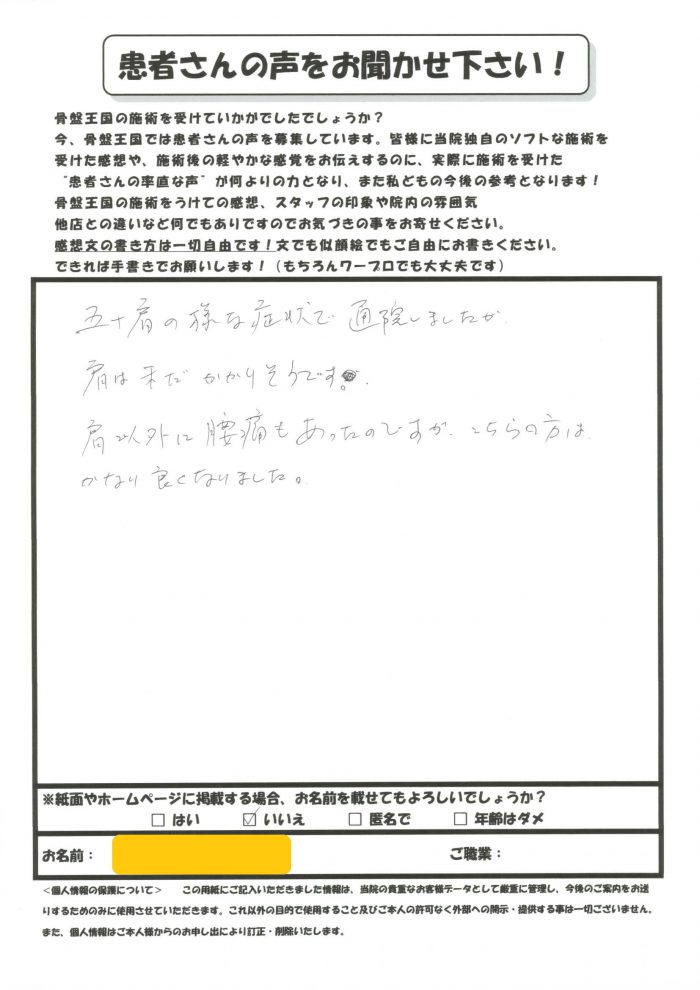 患者さんの声をお聞かせ下さい！
骨盤王国の施術を受けていかがでしたでしょうか？
今、骨盤王国では患者さんの声を募集しています。皆様に当院独自のソフトな施術を
受けた感想や、施術後の軽やかな感覚をお伝えするのに、実際に施術を受けた
"患者さんの率直な声"が何よりの力となり、また私どもの今後の参考となります！
骨盤王国の施術をうけての感想、スタッフの印象や院内の雰囲気
他店との違いなど何でもありですのでお気づきの事をお寄せください。
感想文の書き方は一切自由です！文でも似顔絵でもご自由にお書きください。
できれば手書きでお願いします！（もちろんワープロでも大丈夫です）
五十肩の様な症状で通院しましたが、
肩は未だかかりそうです。
肩以外に腰痛もあったのですが、こちらの方は、
かなり良くなりました。
※紙面やホームページに掲載する場合、お名前を載せてもよろしいでしょうか？
□ はい ☑ いいえ □ 匿名で □ 年齢はダメ
お名前： ご職業：
＜個人情報の保護について＞ この用紙にご記入いただきました情報は、当院の貴重なお客様データとして厳重に管理し、今後のご案内をお送
りするためのみに使用させていただきます。これ以外の目的で使用すること及びご本人の許可なく外部への開示・提供する事は一切ございません。
また、個人情報はご本人様からのお申し出により訂正・削除いたします。